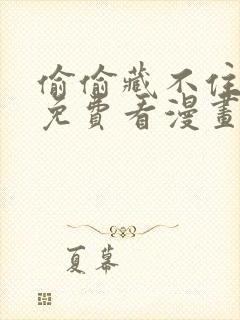 偷偷藏不住
免費看漫畫
夏幕